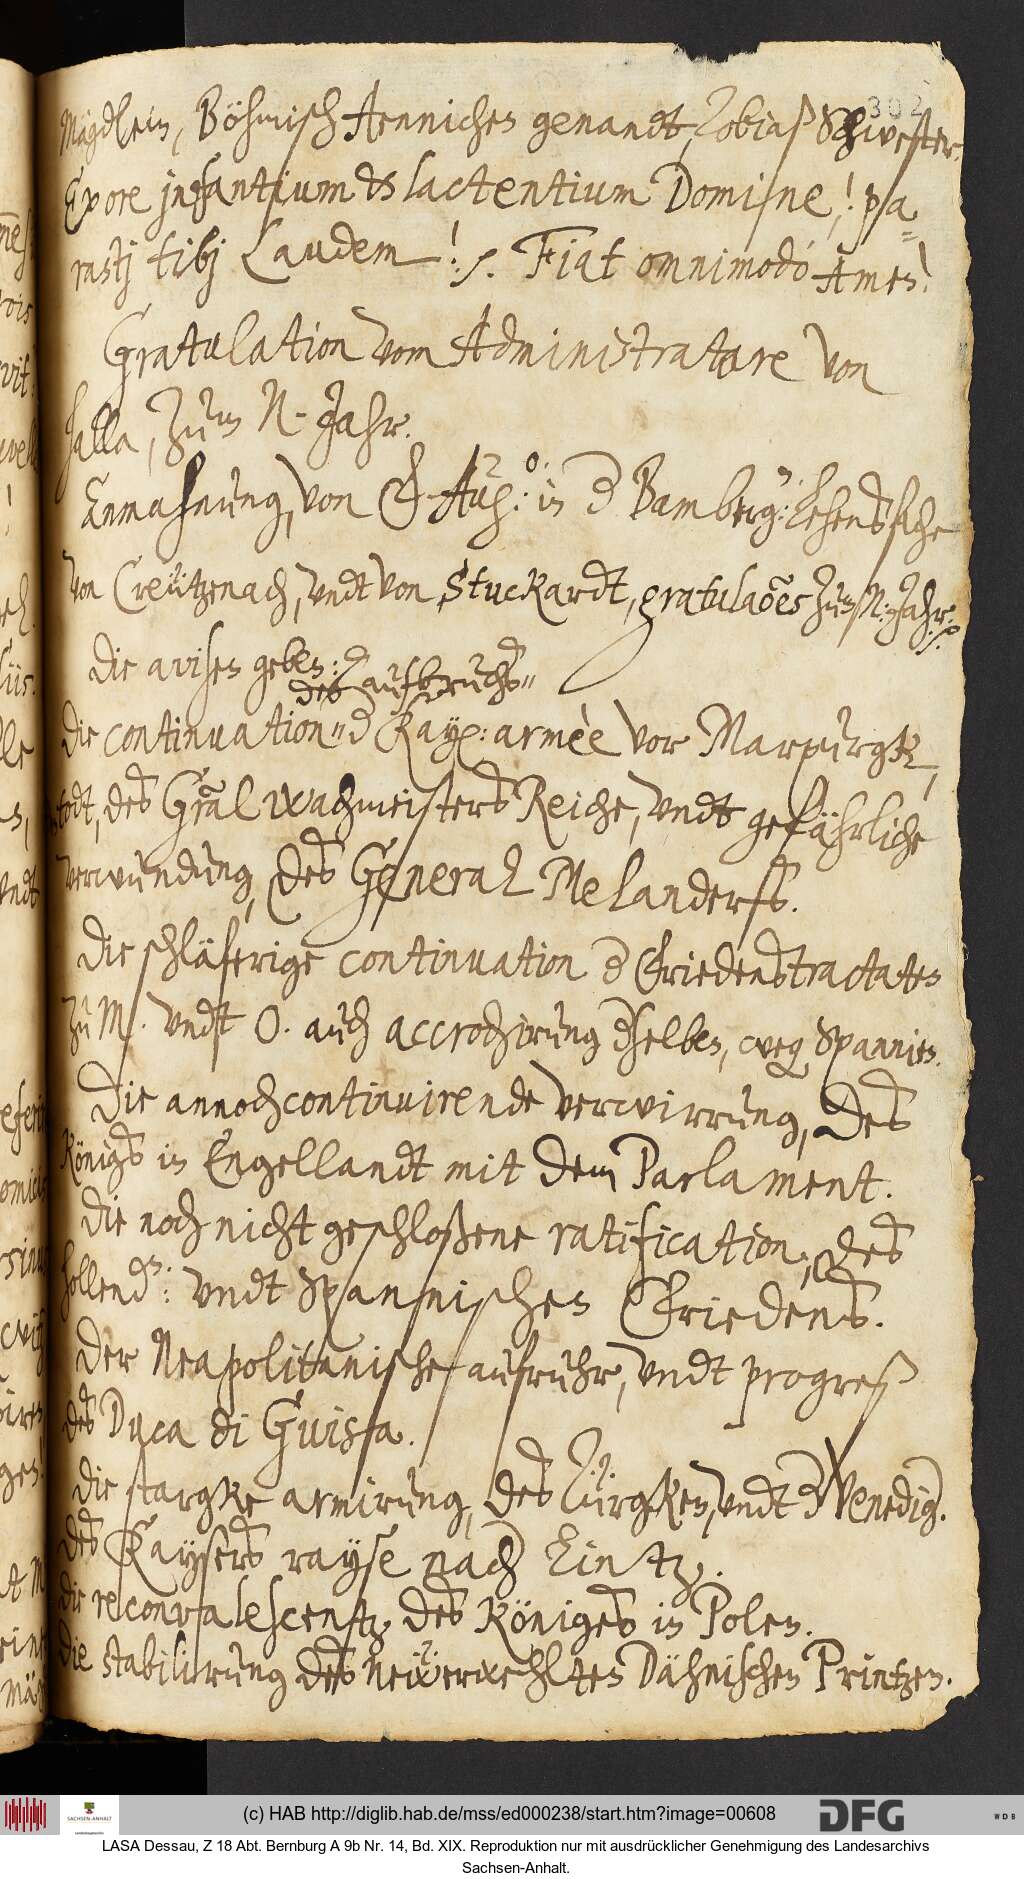 302
Mägdlein, Böhmisch Aennichen genandt, Tobiaß Schwester.
Ex ore jnfantium & lactentium Domine,! pa=
rastj tibj Laudem!./. Fiat omnimodó Amen!
Gratulation vom Administratore von
Halla, zum N- Jahr.
Anmahnung, von F. Aug: in d Bamberg: Lehenssache
von Creützenach, vndt von Stuckardt, gratulaões zum N: Jahr./.
Die avisen geben: d
des aufbruchs"
Die continuation " d Kay: armèe vor Marpurgk,
todt, des Gräl wachmeisters Reiche, vndt gefährliche
verwundung, des General Melanders.
Die schläferige continuation d Friedenstractaten
zu M. vndt O. auch accrochirung dselben, weg Spannien.
Die annoch continuirende verwirrung, des
Königs in Engellandt mit dem Parlament.
Die noch nicht geschloßene ratification, des
hollend: vndt Spannischen Friedens.
Der Neapolitanische aufruhr, vndt progreß
des Duca di Guisa.
Die stargke armirung, des Türgken, vndt d Venedig.
des Kaysers rayse nach Lintz.
die reconvalescentz des Königes in Polen.
Die stabilirung des neüerwehlten Dähnischen Printzen.
(c) HAB http://diglib.hab.de/mss/ed000238/start.htm?image=00608
SACHSEN-ANHALT
DFG
WDB
LASA Dessau, Z 18 Abt. Bernburg A 9b Nr. 14, Bd. XIX. Reproduktion nur mit ausdrücklicher Genehmigung des Landesarchivs
Sachsen-Anhalt.